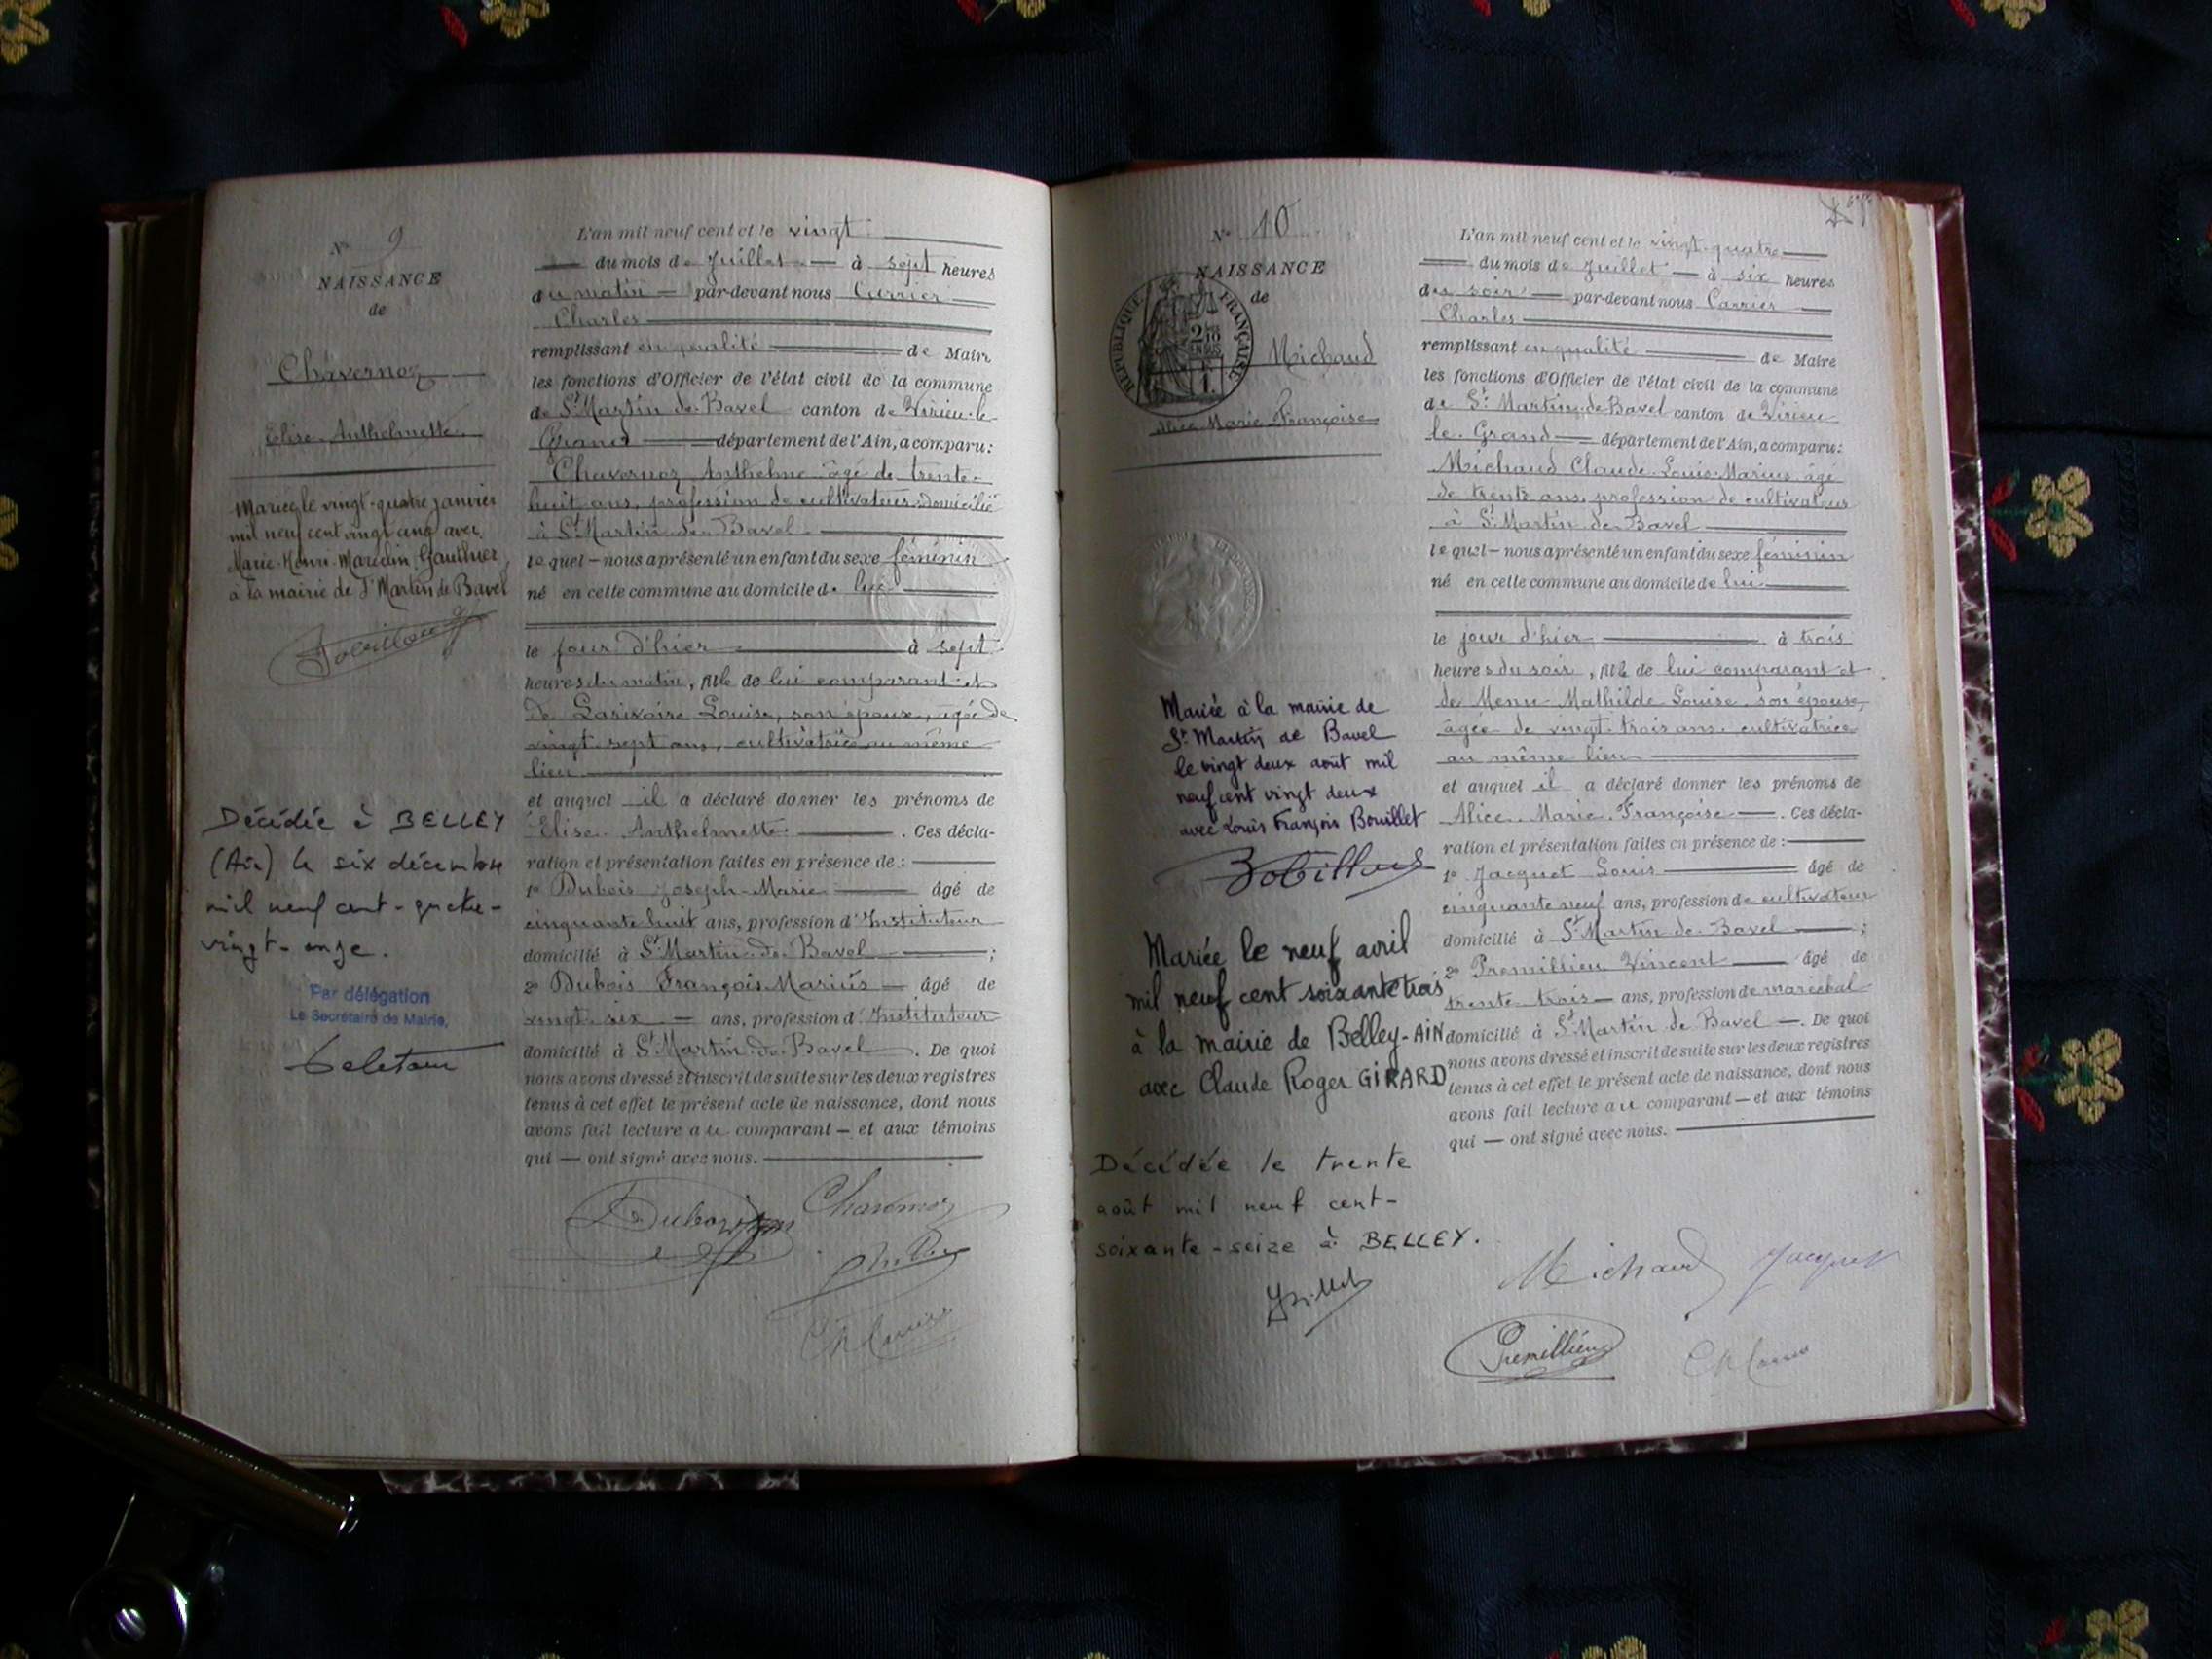 N° 9
NAISSANCE
de
Chavernoz
Elise Anthelmette
Mariée le vingt-quatre janvier
mil neuf cent vingt cinq avec
Marie-Henri-Marcelin Gauthier,
à la mairie de St Martin de Bavel
Décédée à BELLEY
(Ain) le six décembre
mil neuf cent-quatre-
vingt-onze.
Par délégation
Le Secrétaire de Mairie,
L'an mil neuf cent et le vingt
du mois de Juillet à sept heures
du matin par-devant nous Carrier
Charles
remplissant en qualité de Maire
les fonctions d'Officier de l'état civil de la commune
de St Martin-de-Bavel canton de Virieu-le-
Grand département de l'Ain, a comparu:
Chavernoz Anthelme âgé de trente-
huit ans, profession de cultivateur, domicilié
à St Martin-de-Bavel
lequel nous a présenté un enfant du sexe féminin
né en cette commune au domicile de lui
le jour d'hier à sept
heures du matin, fille de lui comparant et
de Larivoire Louise, son épouse, âgée de
vingt-sept ans, cultivatrice au même
lieu
et auquel il a déclaré donner les prénoms de
Elise Anthelmette. Ces décla-
ration et présentation faites en présence de :
1° Dubois Joseph-Marie âgé de
cinquante huit ans, profession d'Instituteur
domicilié à St Martin-de-Bavel ;
2° Dubois François Marius âgé de
vingt-six ans, profession d'Instituteur
domicilié à St Martin-de-Bavel. De quoi
nous avons dressé et inscrit de suite sur les deux registres
tenus à cet effet le présent acte de naissance, dont nous
avons fait lecture au comparant et aux témoins
qui ont signé avec nous.
Chavernoz
N° 10
NAISSANCE
de
RÉPUBLIQUE FRANÇAISE
Michaud
Alice Marie Françoise
Mariée à la mairie de
St Martin de Bavel
le vingt deux août mil
neuf cent vingt deux
avec Louis François Bouillet
Mariée le neuf avril
mil neuf cent soixante trois
à la mairie de Belley-AIN
avec Claude Roger GIRARD
Décédée le trente
août mil neuf cent-
soixante-seize à BELLEY.
L'an mil neuf cent et le vingt-quatre
du mois de Juillet à six heures
du soir par-devant nous Carrier
Charles
remplissant en qualité de Maire
les fonctions d'Officier de l'état civil de la commune
de St Martin-de-Bavel canton de Virieu-
le-Grand département de l'Ain, a comparu:
Michaud Claude-Louis-Marius, âgé
de trente ans, profession de cultivateur
à St Martin de Bavel
lequel nous a présenté un enfant du sexe féminin
né en cette commune au domicile de lui
le jour d'hier à trois
heures du soir, fille de lui comparant et
de Menu Mathilde Louise, son épouse,
âgée de vingt-trois ans, cultivatrice
au même lieu
et auquel il a déclaré donner les prénoms de
Alice Marie Françoise. Ces décla-
ration et présentation faites en présence de :
1° Jacquet Louis âgé de
cinquante neuf ans, profession de cultivateur
domicilié à St Martin-de-Bavel ;
2° Premillieu Vincent âgé de
trente trois ans, profession de maréchal
domicilié à St Martin de Bavel. De quoi
nous avons dressé et inscrit de suite sur les deux registres
tenus à cet effet le présent acte de naissance, dont nous
avons fait lecture au comparant et aux témoins
qui ont signé avec nous.
Michaud Jacquet
Premillieu